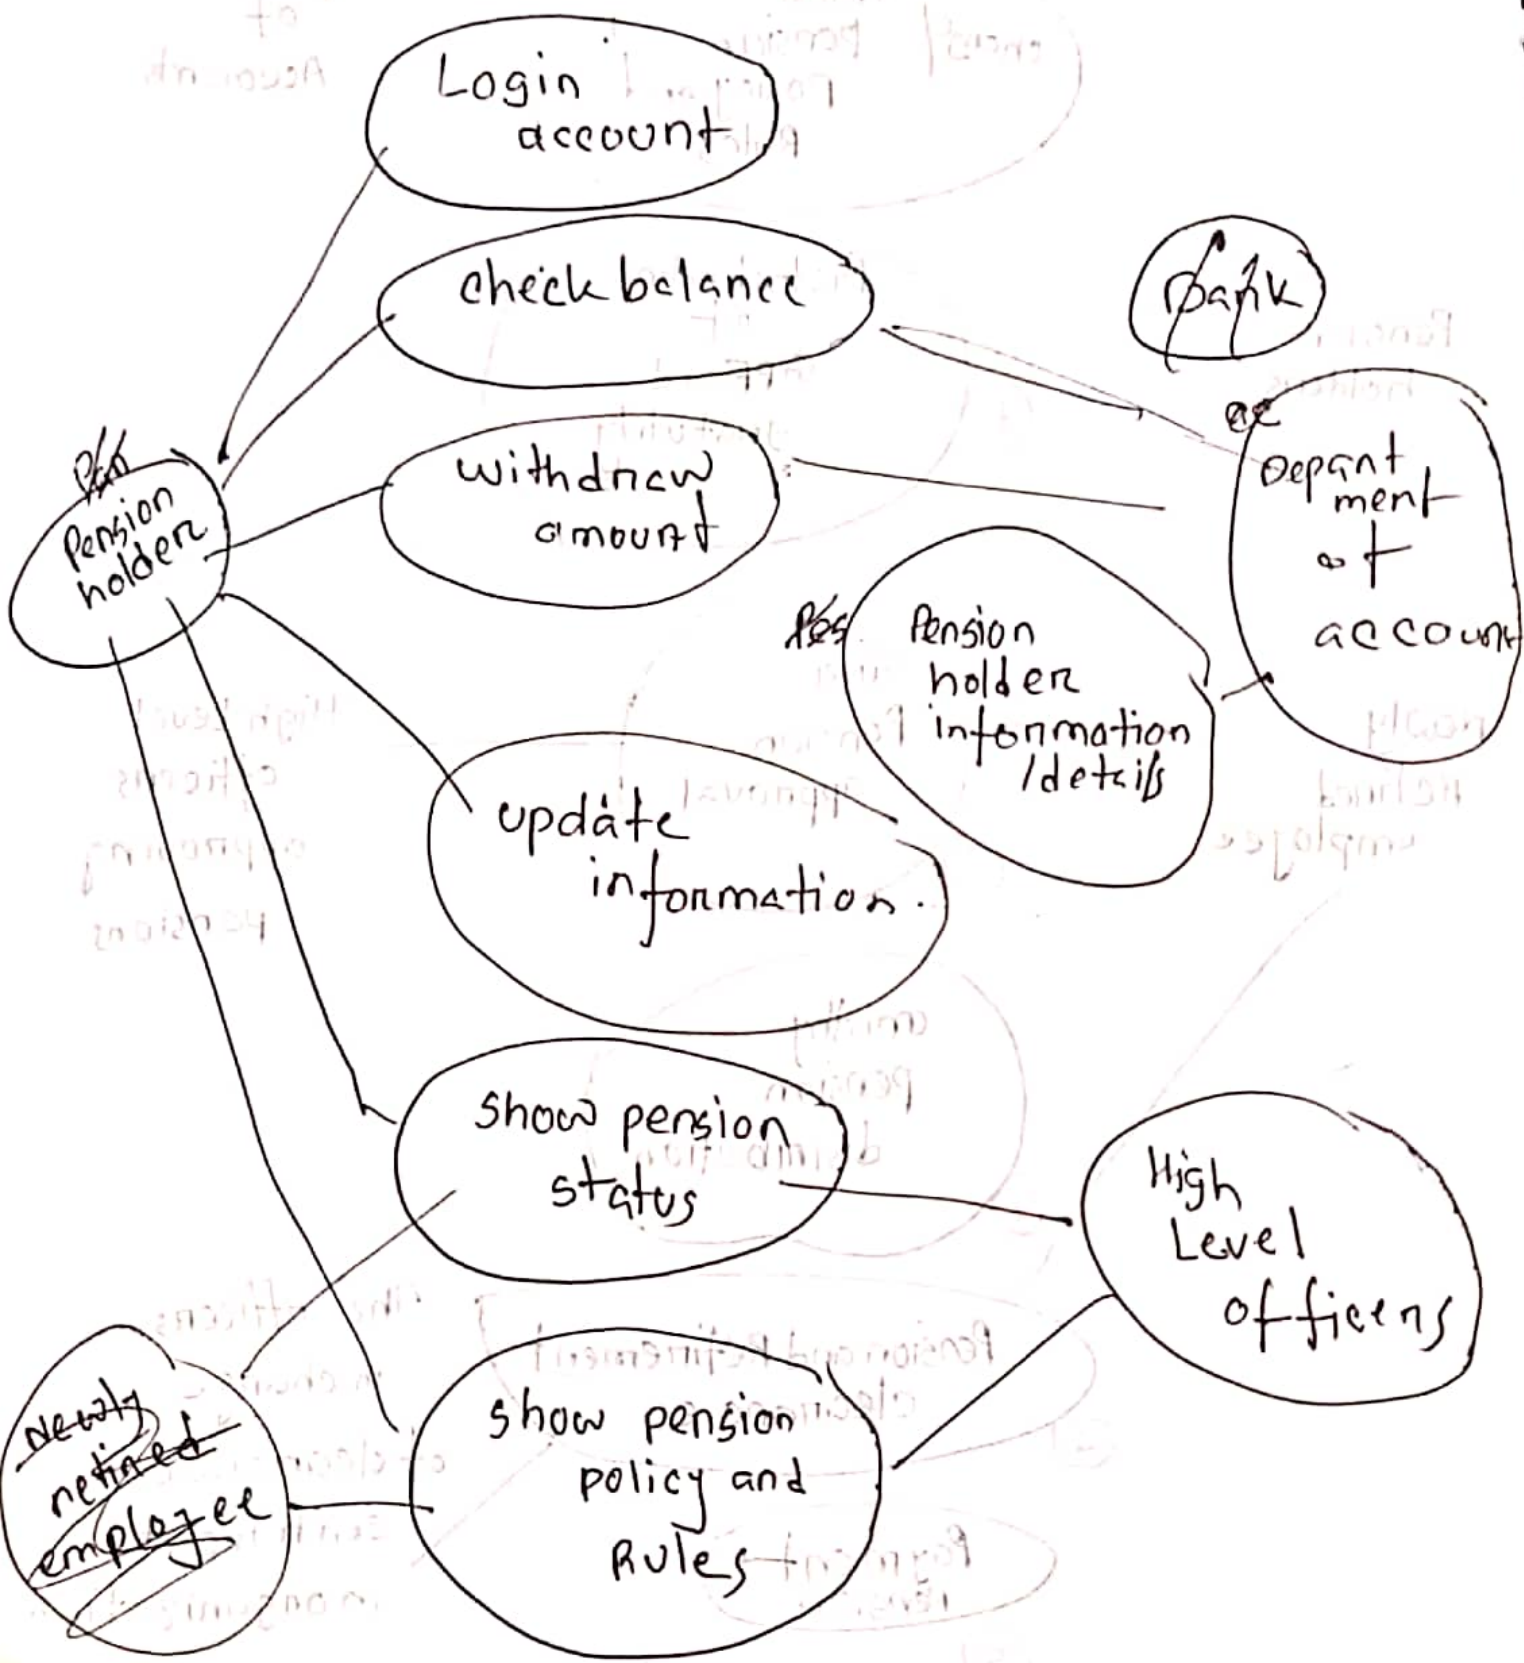 Login
account
check balance
bank
Pension
holder
withdraw
amount
Depart
ment
of
account
Pension
holder
information
/details
update
information.
show pension
status
High
Level
officers
Newly
retired
employee
show pension
policy and
Rules